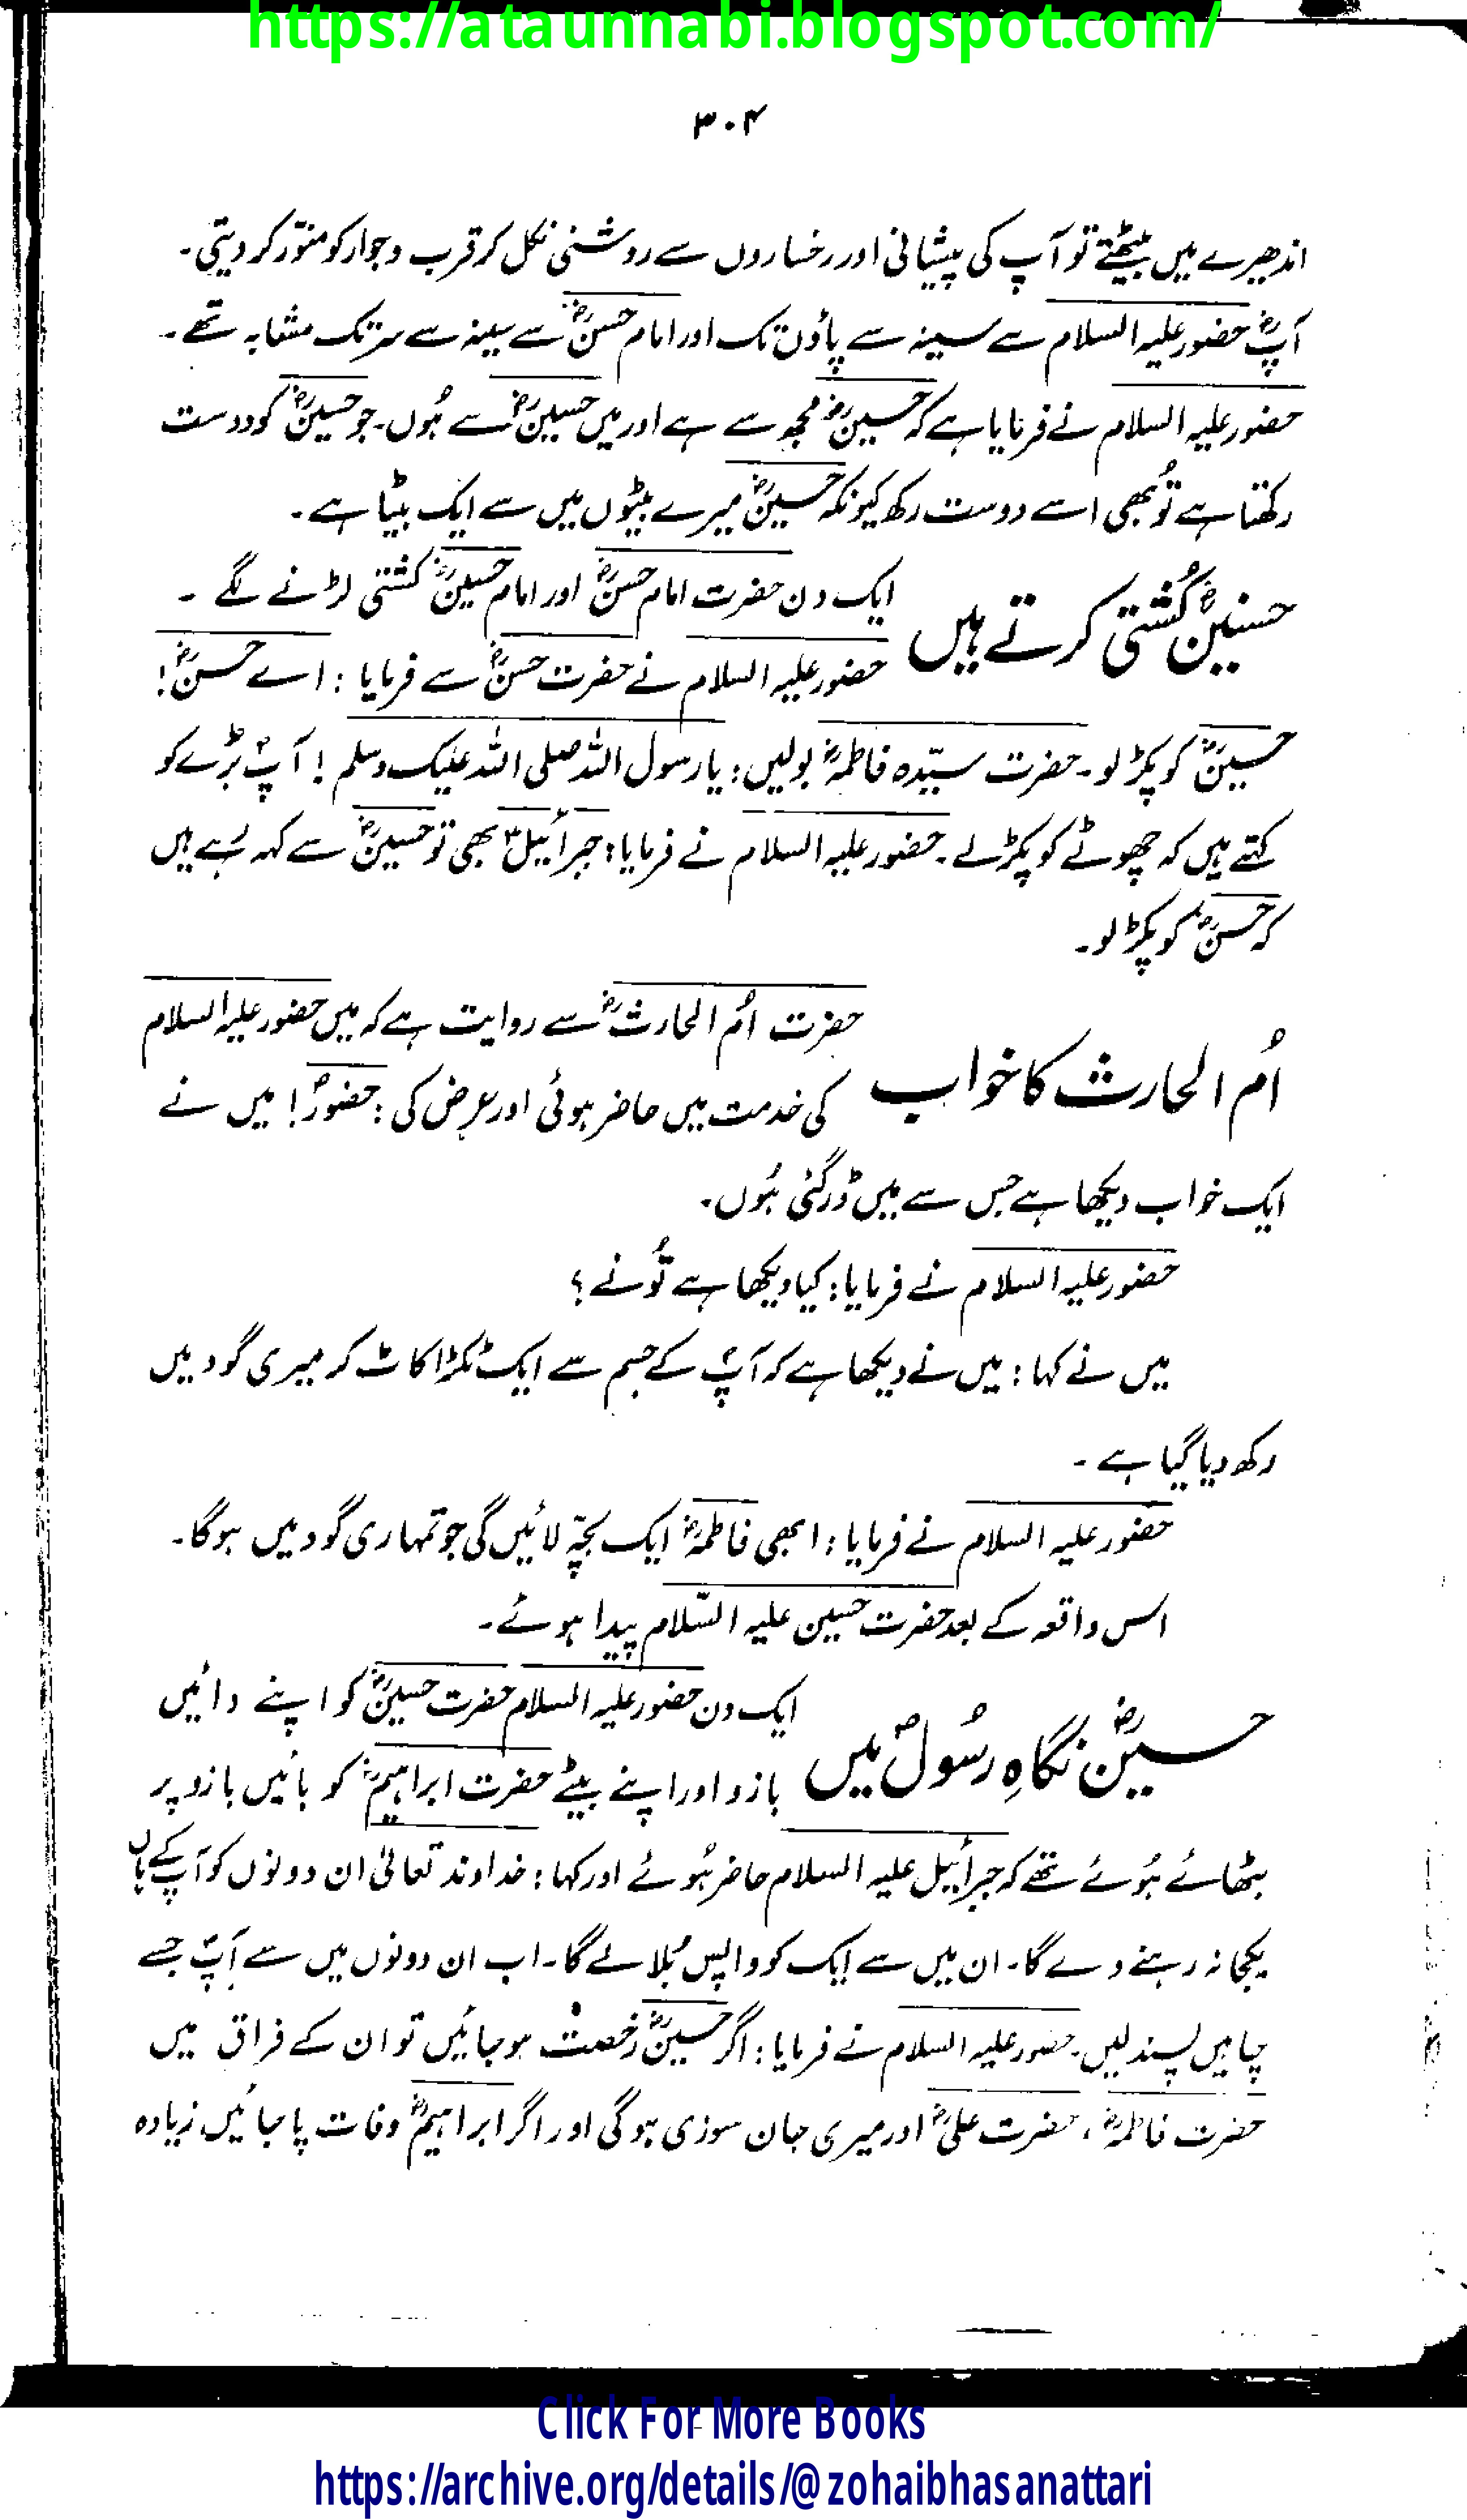 https://ataunnabi.blogspot.com/
۳۰۴
اندھیرے میں بیٹھتے تو آپ کی پیشانی اور رخساروں سے روشنی نکل کر قرب و جوار کو منوّر کر دیتی۔
آپؓ حضور علیہ السلام سے سینہ سے پاؤں تک اور امام حسنؓ سے سینہ سے سر تک مشابہ تھے۔
حضور علیہ السلام نے فرمایا ہے کہ حسینؓ مجھ سے ہے اور میں حسینؓ سے ہُوں۔ جو حسینؓ کو دوست
رکھتا ہے تُو بھی اسے دوست رکھ کیونکہ حسینؓ میرے بیٹوں میں سے ایک بیٹا ہے۔
حسنینؓ کُشتی کرتے ہیں
ایک دن حضرت امام حسنؓ اور امام حسینؓ کشتی لڑنے لگے ۔
حضور علیہ السلام نے حضرت حسنؓ سے فرمایا : اے حسنؓ!
حسینؓ کو پکڑ لو۔ حضرت سیّدہ فاطمہؓ بولیں: یا رسول اللہ صلی اللہ علیک وسلم ! آپؐ بڑے کو
کہتے ہیں کہ چھوٹے کو پکڑ لے۔ حضور علیہ السلام نے فرمایا: جبرائیلؑ بھی تو حسینؓ سے کہہ رہے ہیں
کہ حسنؓ کو پکڑ لو۔
اُم الحارث کا خواب
حضرت اُم الحارثؓ سے روایت ہے کہ میں حضور علیہ السلام
کی خدمت میں حاضر ہوئی اور عرض کی: حضورؐ! میں نے
ایک خواب دیکھا ہے جس سے میں ڈر گئی ہُوں۔
حضور علیہ السلام نے فرمایا: کیا دیکھا ہے تُو نے ؟
میں نے کہا : میں نے دیکھا ہے کہ آپؐ کے جسم سے ایک ٹکڑا کاٹ کر میری گود میں
رکھ دیا گیا ہے ۔
حضور علیہ السلام نے فرمایا : ابھی فاطمہؓ ایک بچّہ لائیں گی جو تمہاری گود میں ہوگا۔
اس واقعہ کے بعد حضرت حسین علیہ السّلام پیدا ہوئے۔
حسینؓ نگاہِ رسُولؐ میں
ایک دن حضور علیہ السلام حضرت حسینؓ کو اپنے دائیں
بازو اور اپنے بیٹے حضرت ابراہیمؓ کو بائیں بازو پر
بٹھائے ہُوئے تھے کہ جبرائیل علیہ السلام حاضر ہُوئے اور کہا: خداوند تعالیٰ ان دونوں کو آپؐ کے ہاں
یکجا نہ رہنے دے گا۔ ان میں سے ایک کو واپس بُلا لے گا۔ اب ان دونوں میں سے آپؐ جسے
چاہیں پسند لیں۔ حضور علیہ السلام نے فرمایا: اگر حسینؓ رُخصت ہو جائیں تو ان کے فراق میں
حضرت فاطمہؓ، حضرت علیؓ اور میری جان سوزی ہو گی اور اگر ابراہیمؓ وفات پا جائیں زیادہ
Click For More Books
https://archive.org/details/@zohaibhasanattari